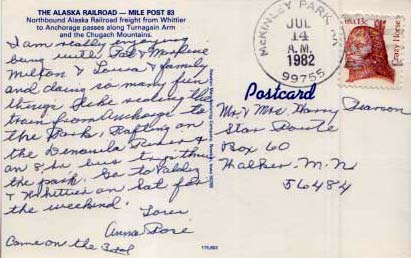 THE ALASKA RAILROAD — MILE POST 83
Northbound Alaska Railroad freight from Whittier
to Anchorage passes along Turnagain Arm
and the Chugach Mountains.
I am really enjoying
being with
Milton & & family
and doing so many fun
things like riding the
train from Anchorage to
the Park, Rafting on
the River &
an 8 hr bus trip thru
the park. Go to Valdez
& Whittier on Sat for
the weekend.
Love,
Anna Rose
Came on the 3rd
McKINLEY PARK, AK
JUL
14
A.M.
1982
99755
USA 13c
Crazy Horse
Postcard
Mr & Mrs Harry Pearson
Star Route
Box 60
Walker MN
56484